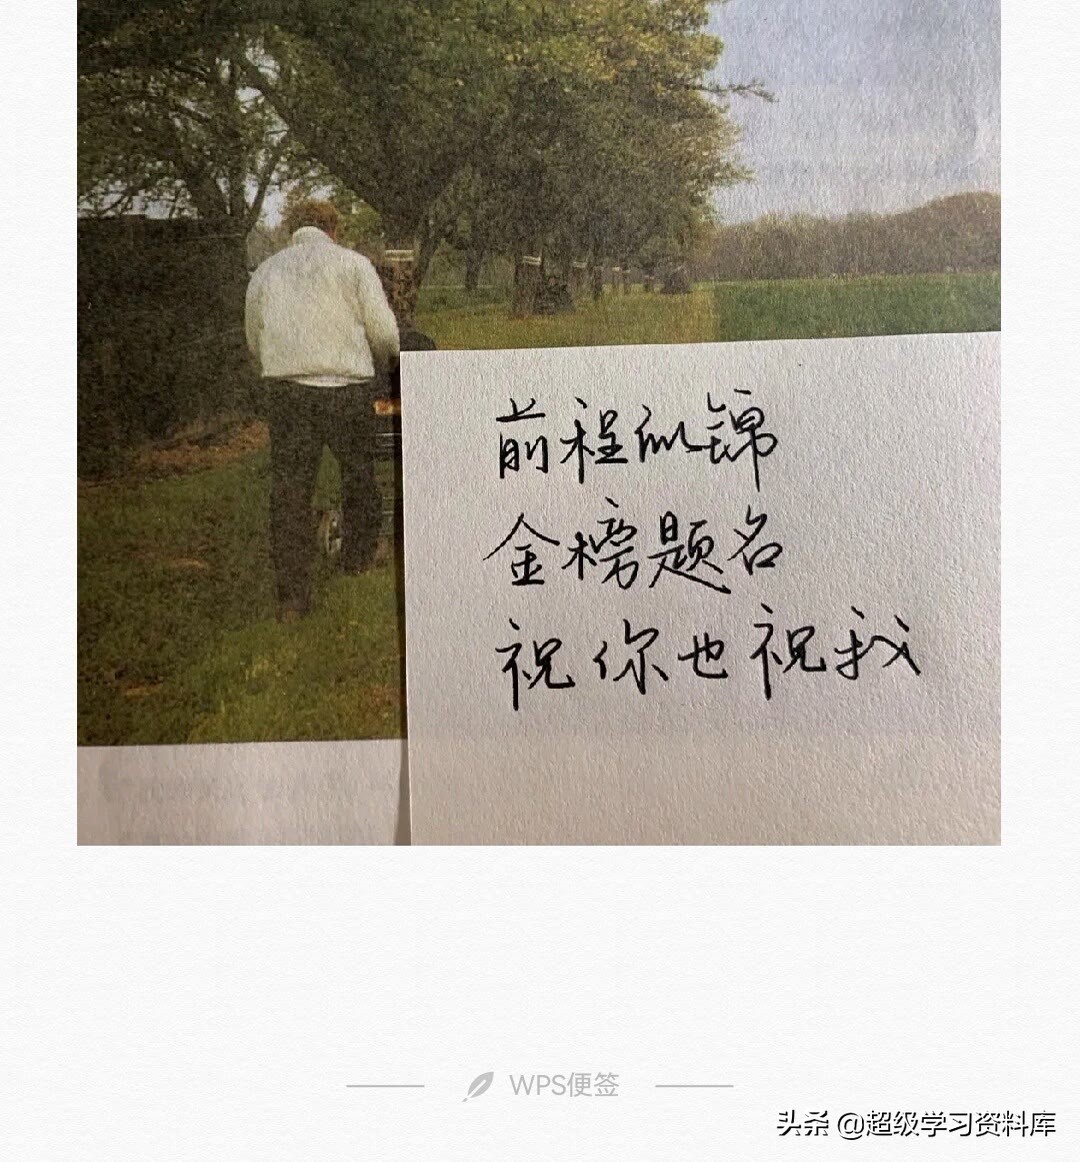 前程似锦
金榜题名
祝你也祝我
WPS便签
头条 @超级学习资料库